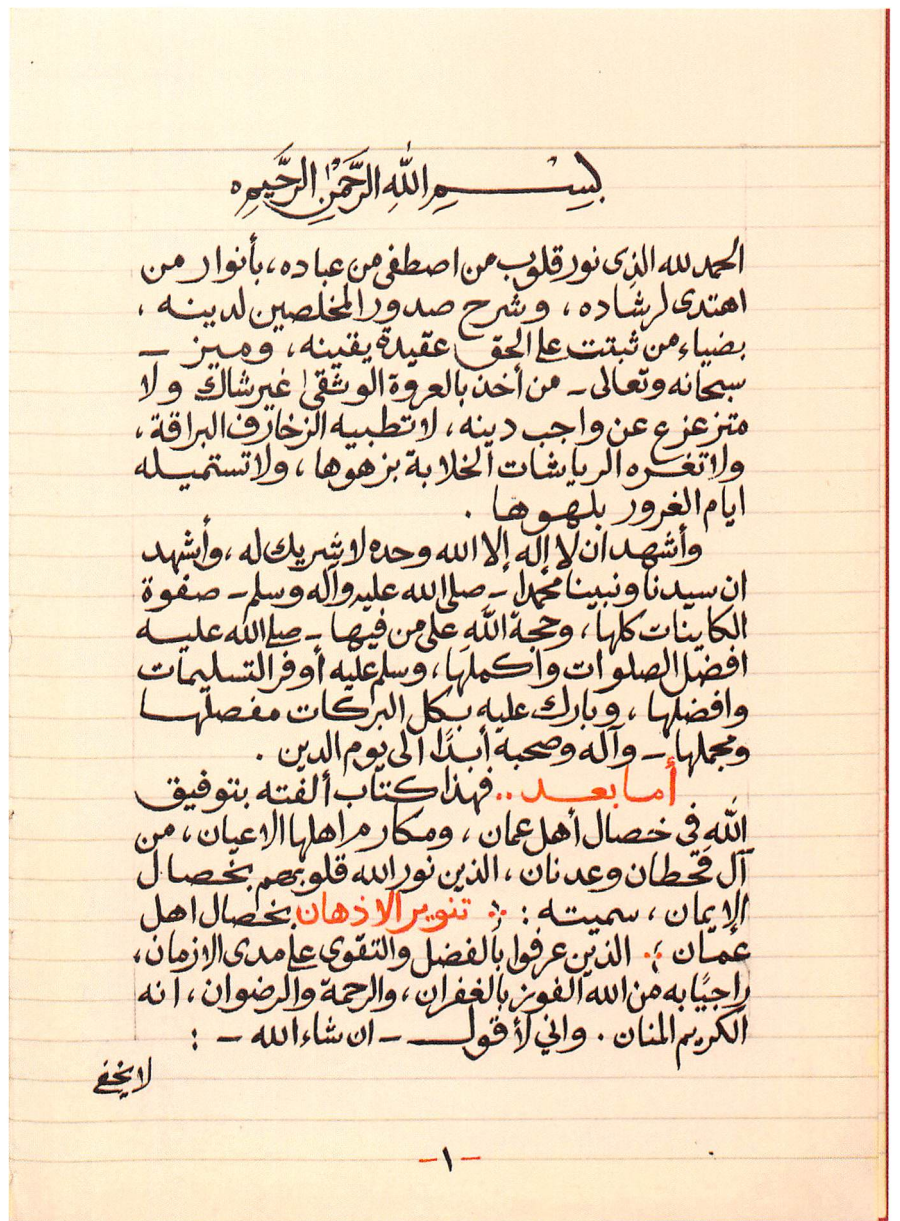 بِسْمِ اللَّهِ الرَّحْمَنِ الرَّحِيمِ ه
الحمد لله الذي نور قلوب من اصطفى من عباده ، بأنوار من
اهتدى لرشاده ، وشرح صدور المخلصين لدينه ،
بضياء من ثبتت على الحق عقيدة يقينه ، وميز –
سبحانه وتعالى – من أخذ بالعروة الوثقى غير شاك ولا
متزعزع عن واجب دينه ، لا تطبيه الزخارف البراقة ،
ولا تغره الرياشات الخلابة بزهوها ، ولا تستميله
ايام الغرور بلهوها .
وأشهد ان لا إله إلا الله وحده لا شريك له ، وأشهد
ان سيدنا ونبينا محمدا – صلى الله عليه وآله وسلم – صفوة
الكاينات كلها ، وحجة اللَّهِ على من فيها – صلى اللَّه عليه
افضل الصلوات واكملها ، وسلم عليه أوفر التسليمات
وافضلها ، وبارك عليه بكل البركات مفصلها
ومجملها – وآله وصحبه أبدًا الى يوم الدين .
أما بعد .. فهذا كتاب ألفته بتوفيق
اللَّهِ في خصال أهل عمان ، ومكارم اهلها الاعيان ، من
آل قحطان وعدنان ، الذين نور الله قلوبهم بخصال
الإيمان ، سميته : تنوير الاذهان بخصال اهل
عمان ؛ الذين عرفوا بالفضل والتقوى على مدى الازمان ،
راجيًا به من الله الفوز بالغفران ، والرحمة والرضوان ، انه
الكريم المنان . واني لأقول – ان شاء الله – :
لا يخفى
– ١ –